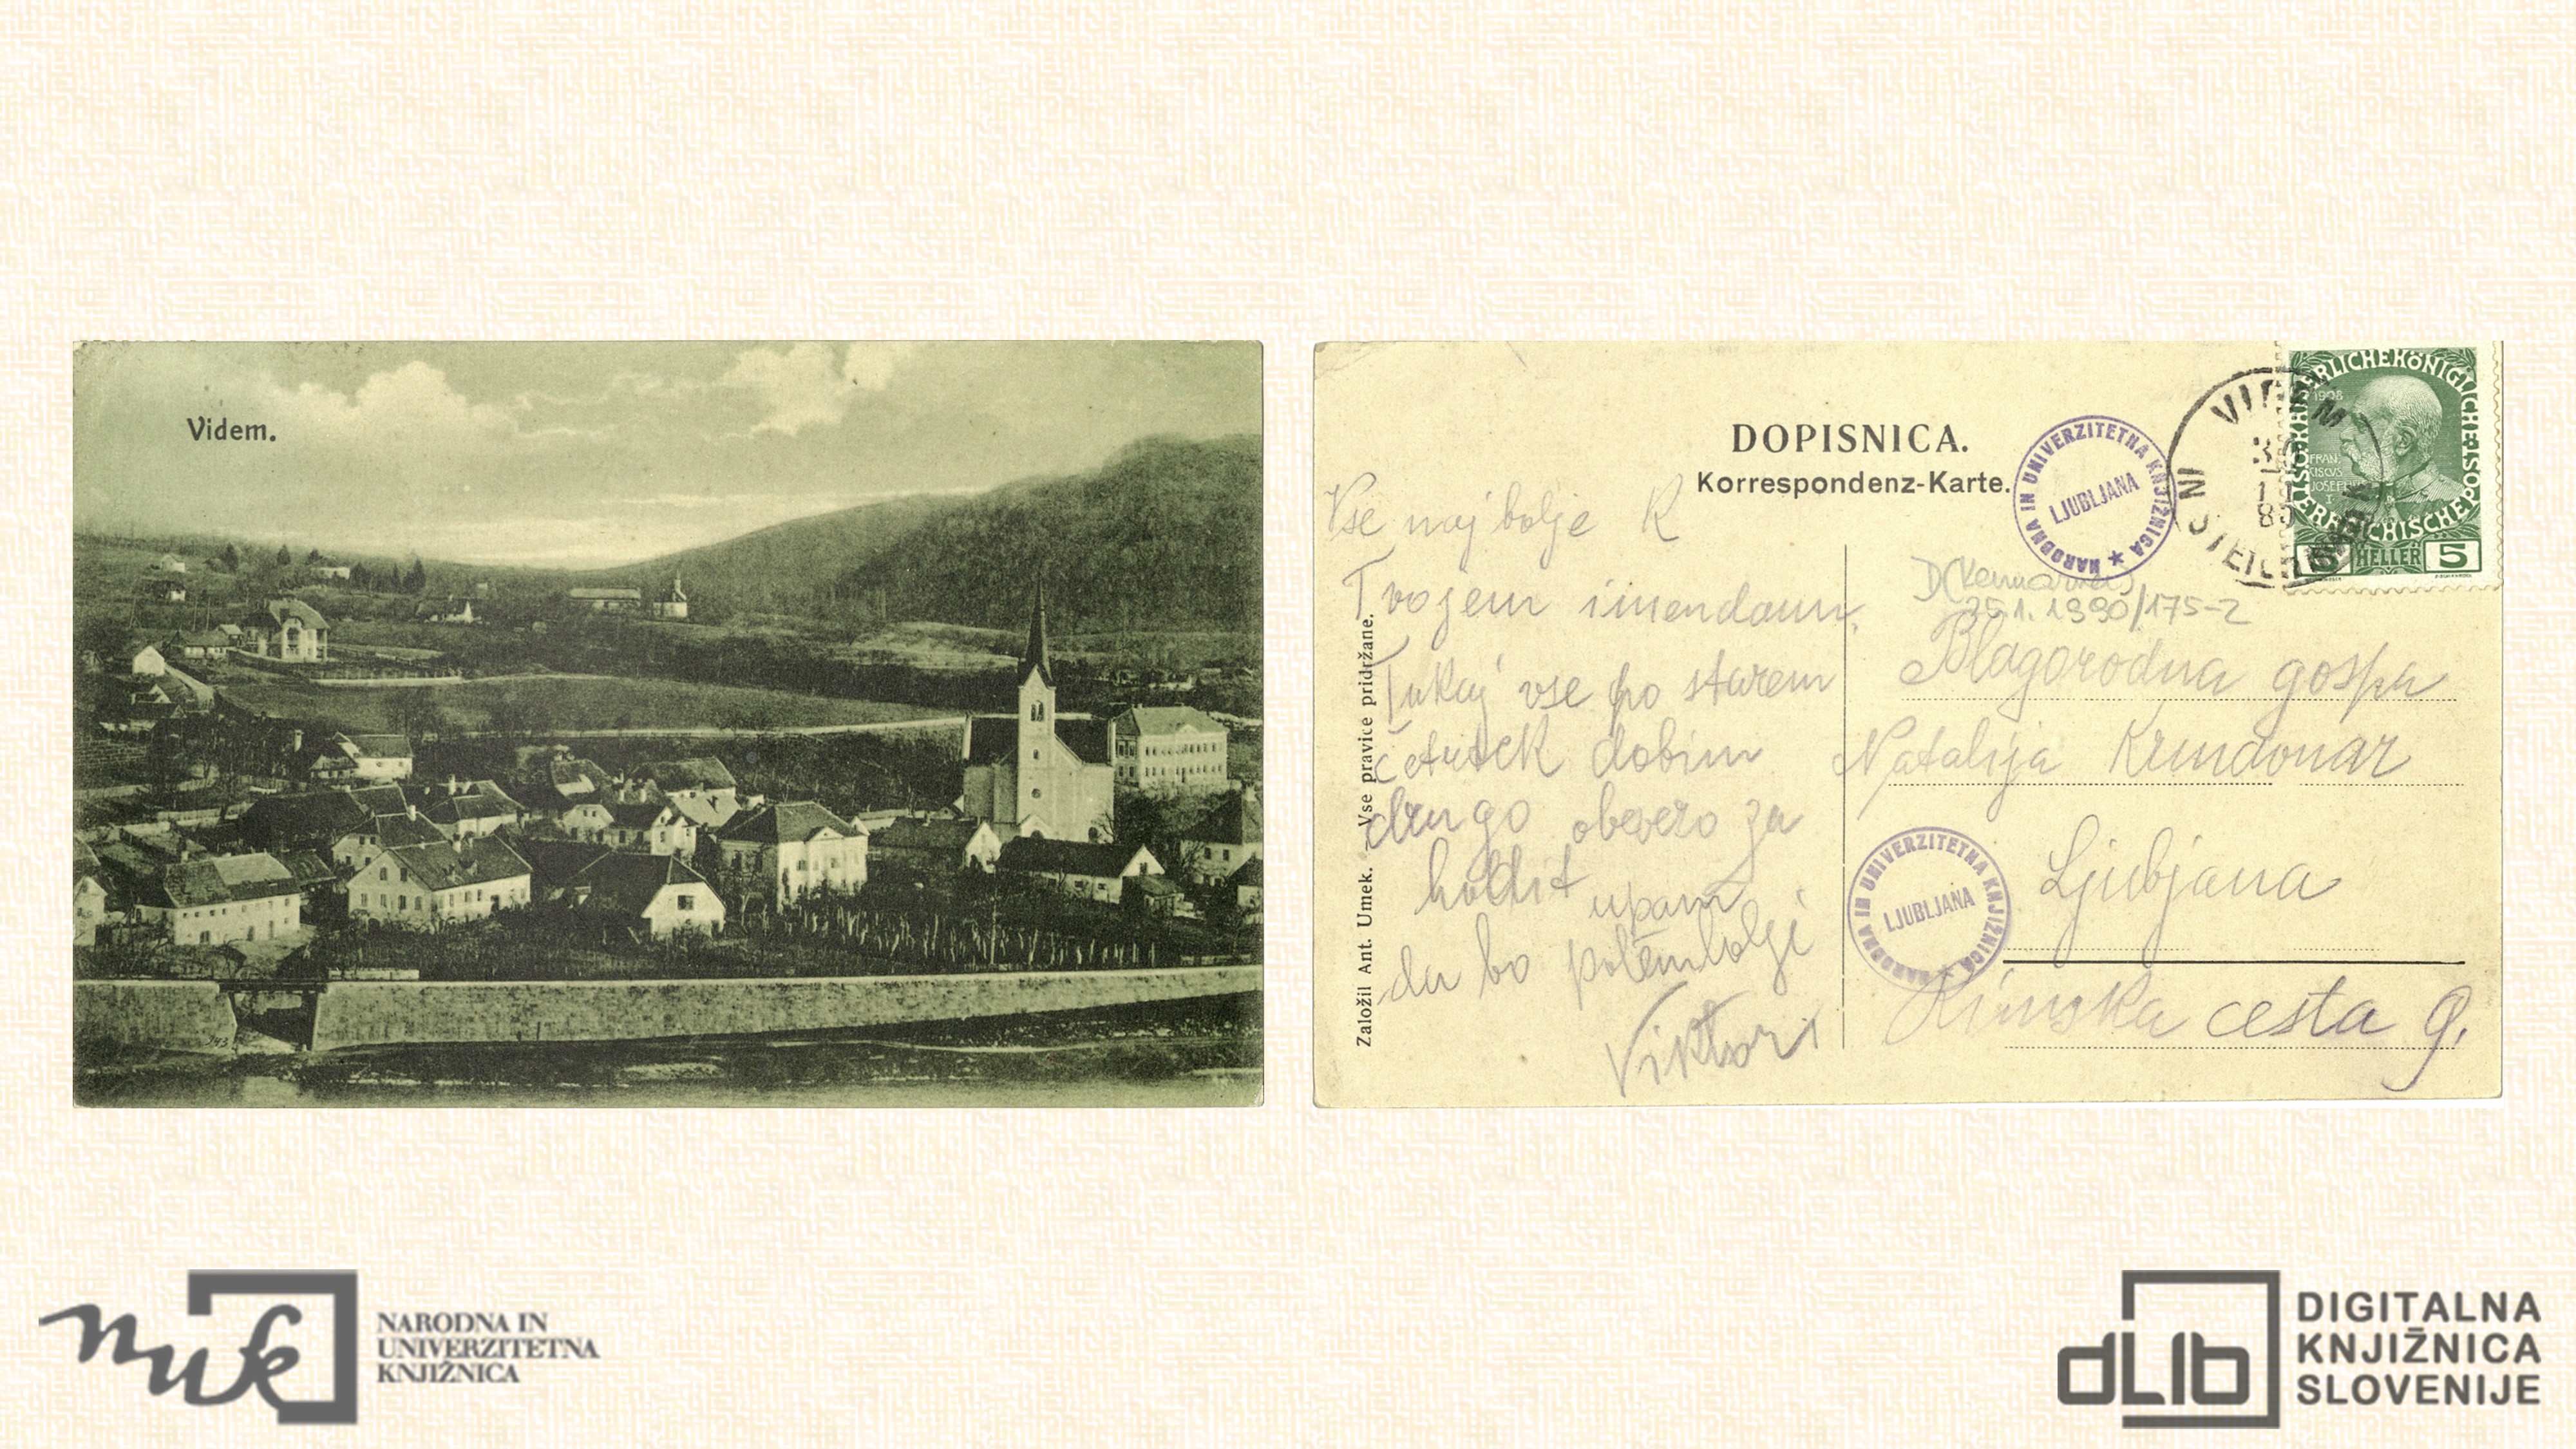 Videm.
943
DOPISNICA.
Korrespondenz-Karte.
NARODNA IN UNIVERZITETNA KNJIŽNICA
LJUBLJANA
1908
FRAN
CISCUS
JOSEPH
I
5 HELLER 5
25.1.1990/175-2
Vse najbolje K
Tvojem imendanu.
Tukaj vse po starem
četrtek dobim
drugo obevezo za
hodit upam
da bo potem bolji
Viktor
Založil Ant. Umek. – Vse pravice pridržane.
Blagorodna gospa
Natalija
Ljubljana
NARODNA IN UNIVERZITETNA KNJIŽNICA
LJUBLJANA
Rimska cesta 9.
nuk
NARODNA IN
UNIVERZITETNA
KNJIŽNICA
dLib
DIGITALNA
KNJIŽNICA
SLOVENIJE